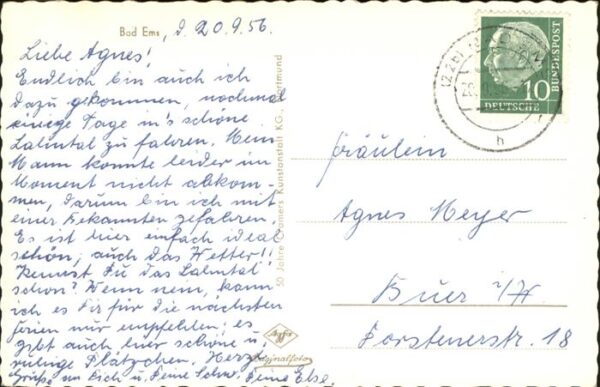 Bad Ems, d. 20.9.56.
Liebe Agnes!
Endlich bin auch ich
dazu gekommen, nochmal
einige Tage in's schöne
Lahntal zu fahren. Mein
Mann konnte leider im
Moment nicht abkom-
men, darum bin ich mit
einer Bekannten gefahren.
Es ist hier einfach ideal
schön, auch das Wetter!!
Kennst Du das Lahntal
schon? Wenn nein, kann
ich es Dir für die nächsten
Ferien nur empfehlen; es
gibt auch hier schöne u.
ruhige Plätzchen. Herzl.
Grüße an Dich u. Deine Schw. Deine Else
50 Jahre Cramers Kunstanstalt KG., Dortmund
Agfa
Originalfoto
(22b)
DEUTSCHE
BUNDESPOST
10
h
Fräulein
Agnes Meyer
Buer i/W
Forstenerstr. 18